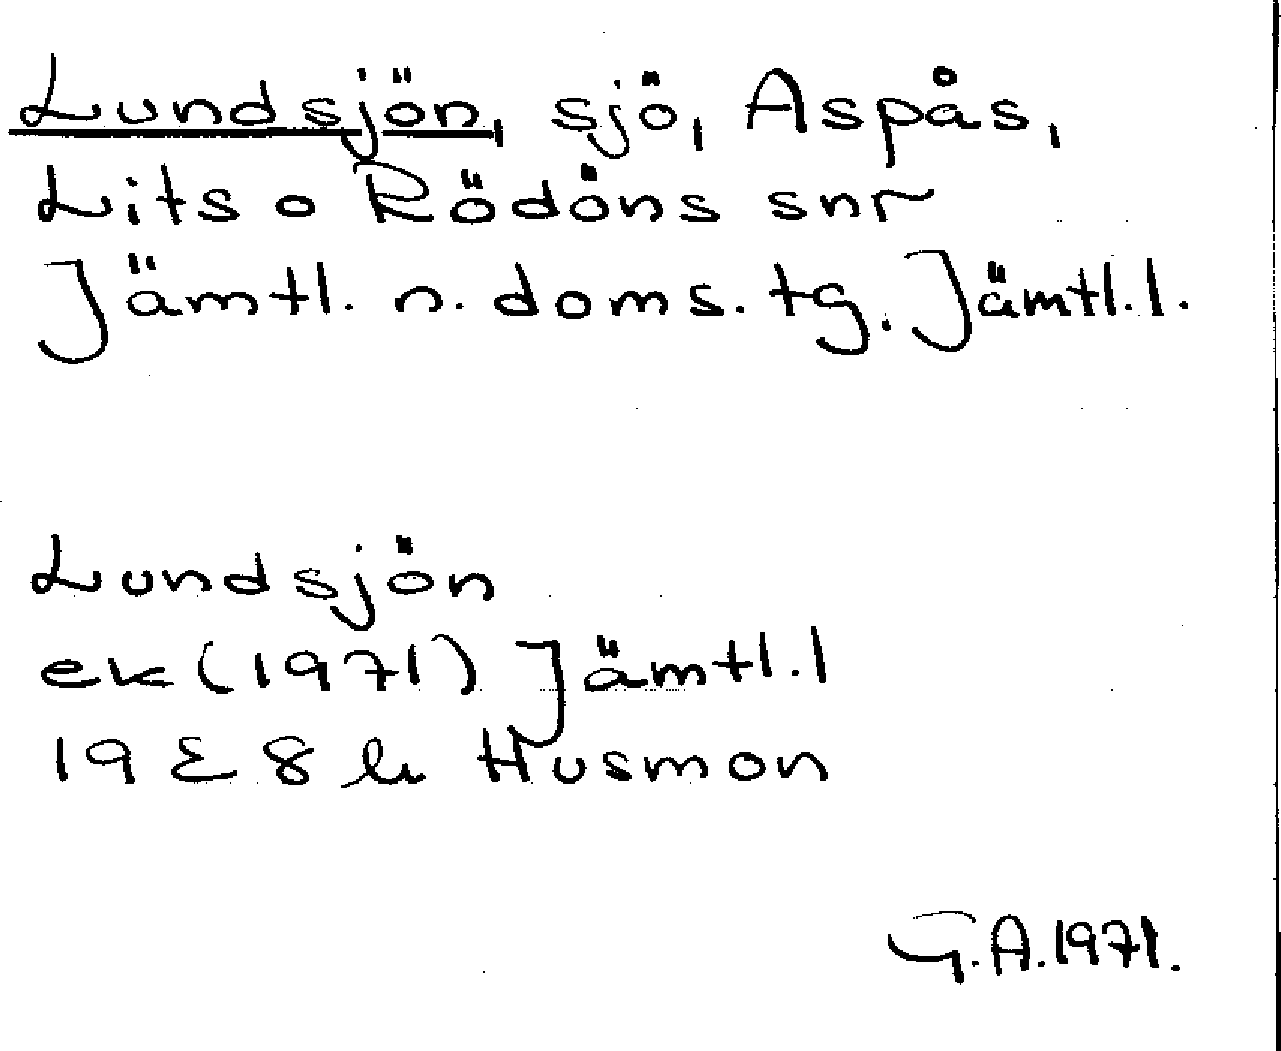 Lundsjön, sjö, Aspås,
Lits o Rödöns snr
Jämtl. n. doms. tg. Jämtl. l.
Lundsjön
ek (1971) Jämtl. l
19 E 8 h Husmon
G.A. 1971.